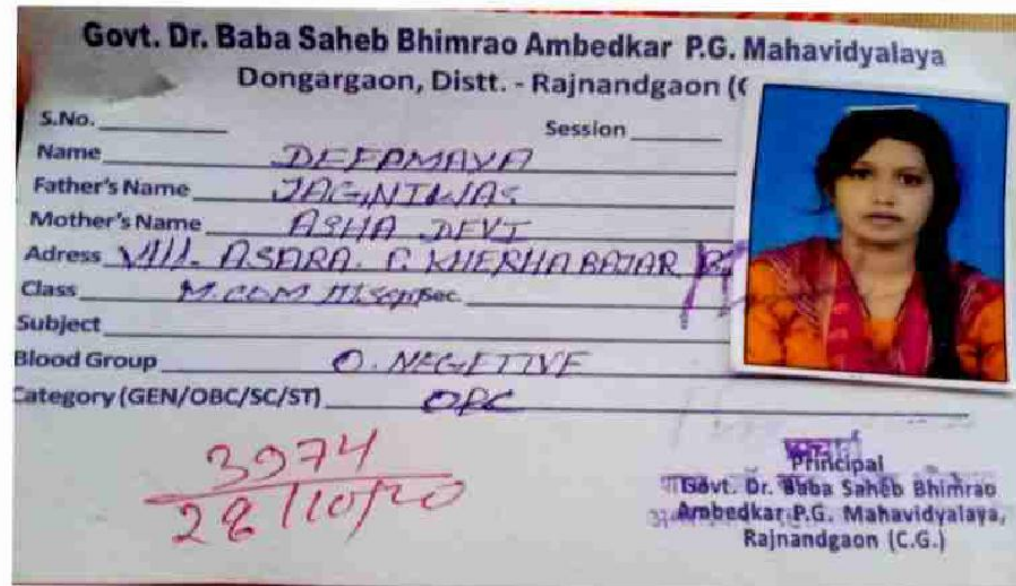 Govt. Dr. Baba Saheb Bhimrao Ambedkar P.G. Mahavidyalaya
Dongargaon, Distt. - Rajnandgaon (
S.No.
Session
Name DEEPMAYA
Father's Name JAGNIWAS
Mother's Name ASHA DEVI
Adress Vill. ASARA. P. KHERHA BAJAR
Class M.COM III Sem Sec.
Subject
Blood Group O. NEGETIVE
Category (GEN/OBC/SC/ST) OBC
3974
28/10/20
Principal
Govt. Dr. Baba Saheb Bhimrao
Ambedkar P.G. Mahavidyalaya,
Rajnandgaon (C.G.)